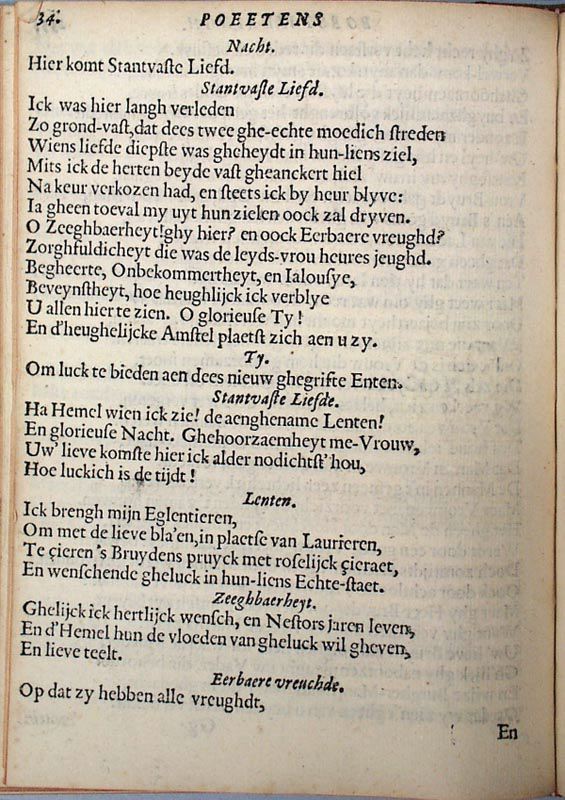 34. POEETENS
Nacht.
Hier komt Stantvaste Liefd.
Stantvaste Liefd.
Ick was hier langh verleden
Zo grond-vast, dat dees twee ghe-echte moedich streden
Wiens liefde diepste was gheheydt in hun-liens ziel,
Mits ick de herten beyde vast gheanckert hiel
Na keur verkozen had, en steets ick by heur blyve:
Ia gheen toeval my uyt hun zielen oock zal dryven.
O Zeeghbaerheyt! ghy hier? en oock Eerbaere vreughd?
Zorghfuldicheyt die was de leyds-vrou heures jeughd.
Begheerte, Onbekommertheyt, en Ialousye,
Beveynstheyt, hoe heughlijck ick verblye
U allen hier te zien. O glorieuse Ty!
En d'heughelijcke Amstel plaetst zich aen u zy.
Ty.
Om luck te bieden aen dees nieuw ghegrifte Enten.
Stantvaste Liefde.
Ha Hemel wien ick zie! de aenghename Lenten!
En glorieuse Nacht. Ghehoorzaemheyt me-Vrouw,
Uw' lieve komste hier ick alder nodichtst' hou,
Hoe luckich is de tijdt!
Lenten.
Ick brengh mijn Eglentieren,
Om met de lieve bla'en, in plaetse van Laurieren,
Te çieren 's Bruydens pruyck met roselijck çieraet,
En wenschende gheluck in hun-liens Echte-staet.
Zeeghbaerheyt.
Ghelijck ick hertlijck wensch, en Nestors jaren leven,
En d'Hemel hun de vloeden van gheluck wil gheven,
En lieve teelt.
Eerbaere vreuchde.
Op dat zy hebben alle vreughdt,
En